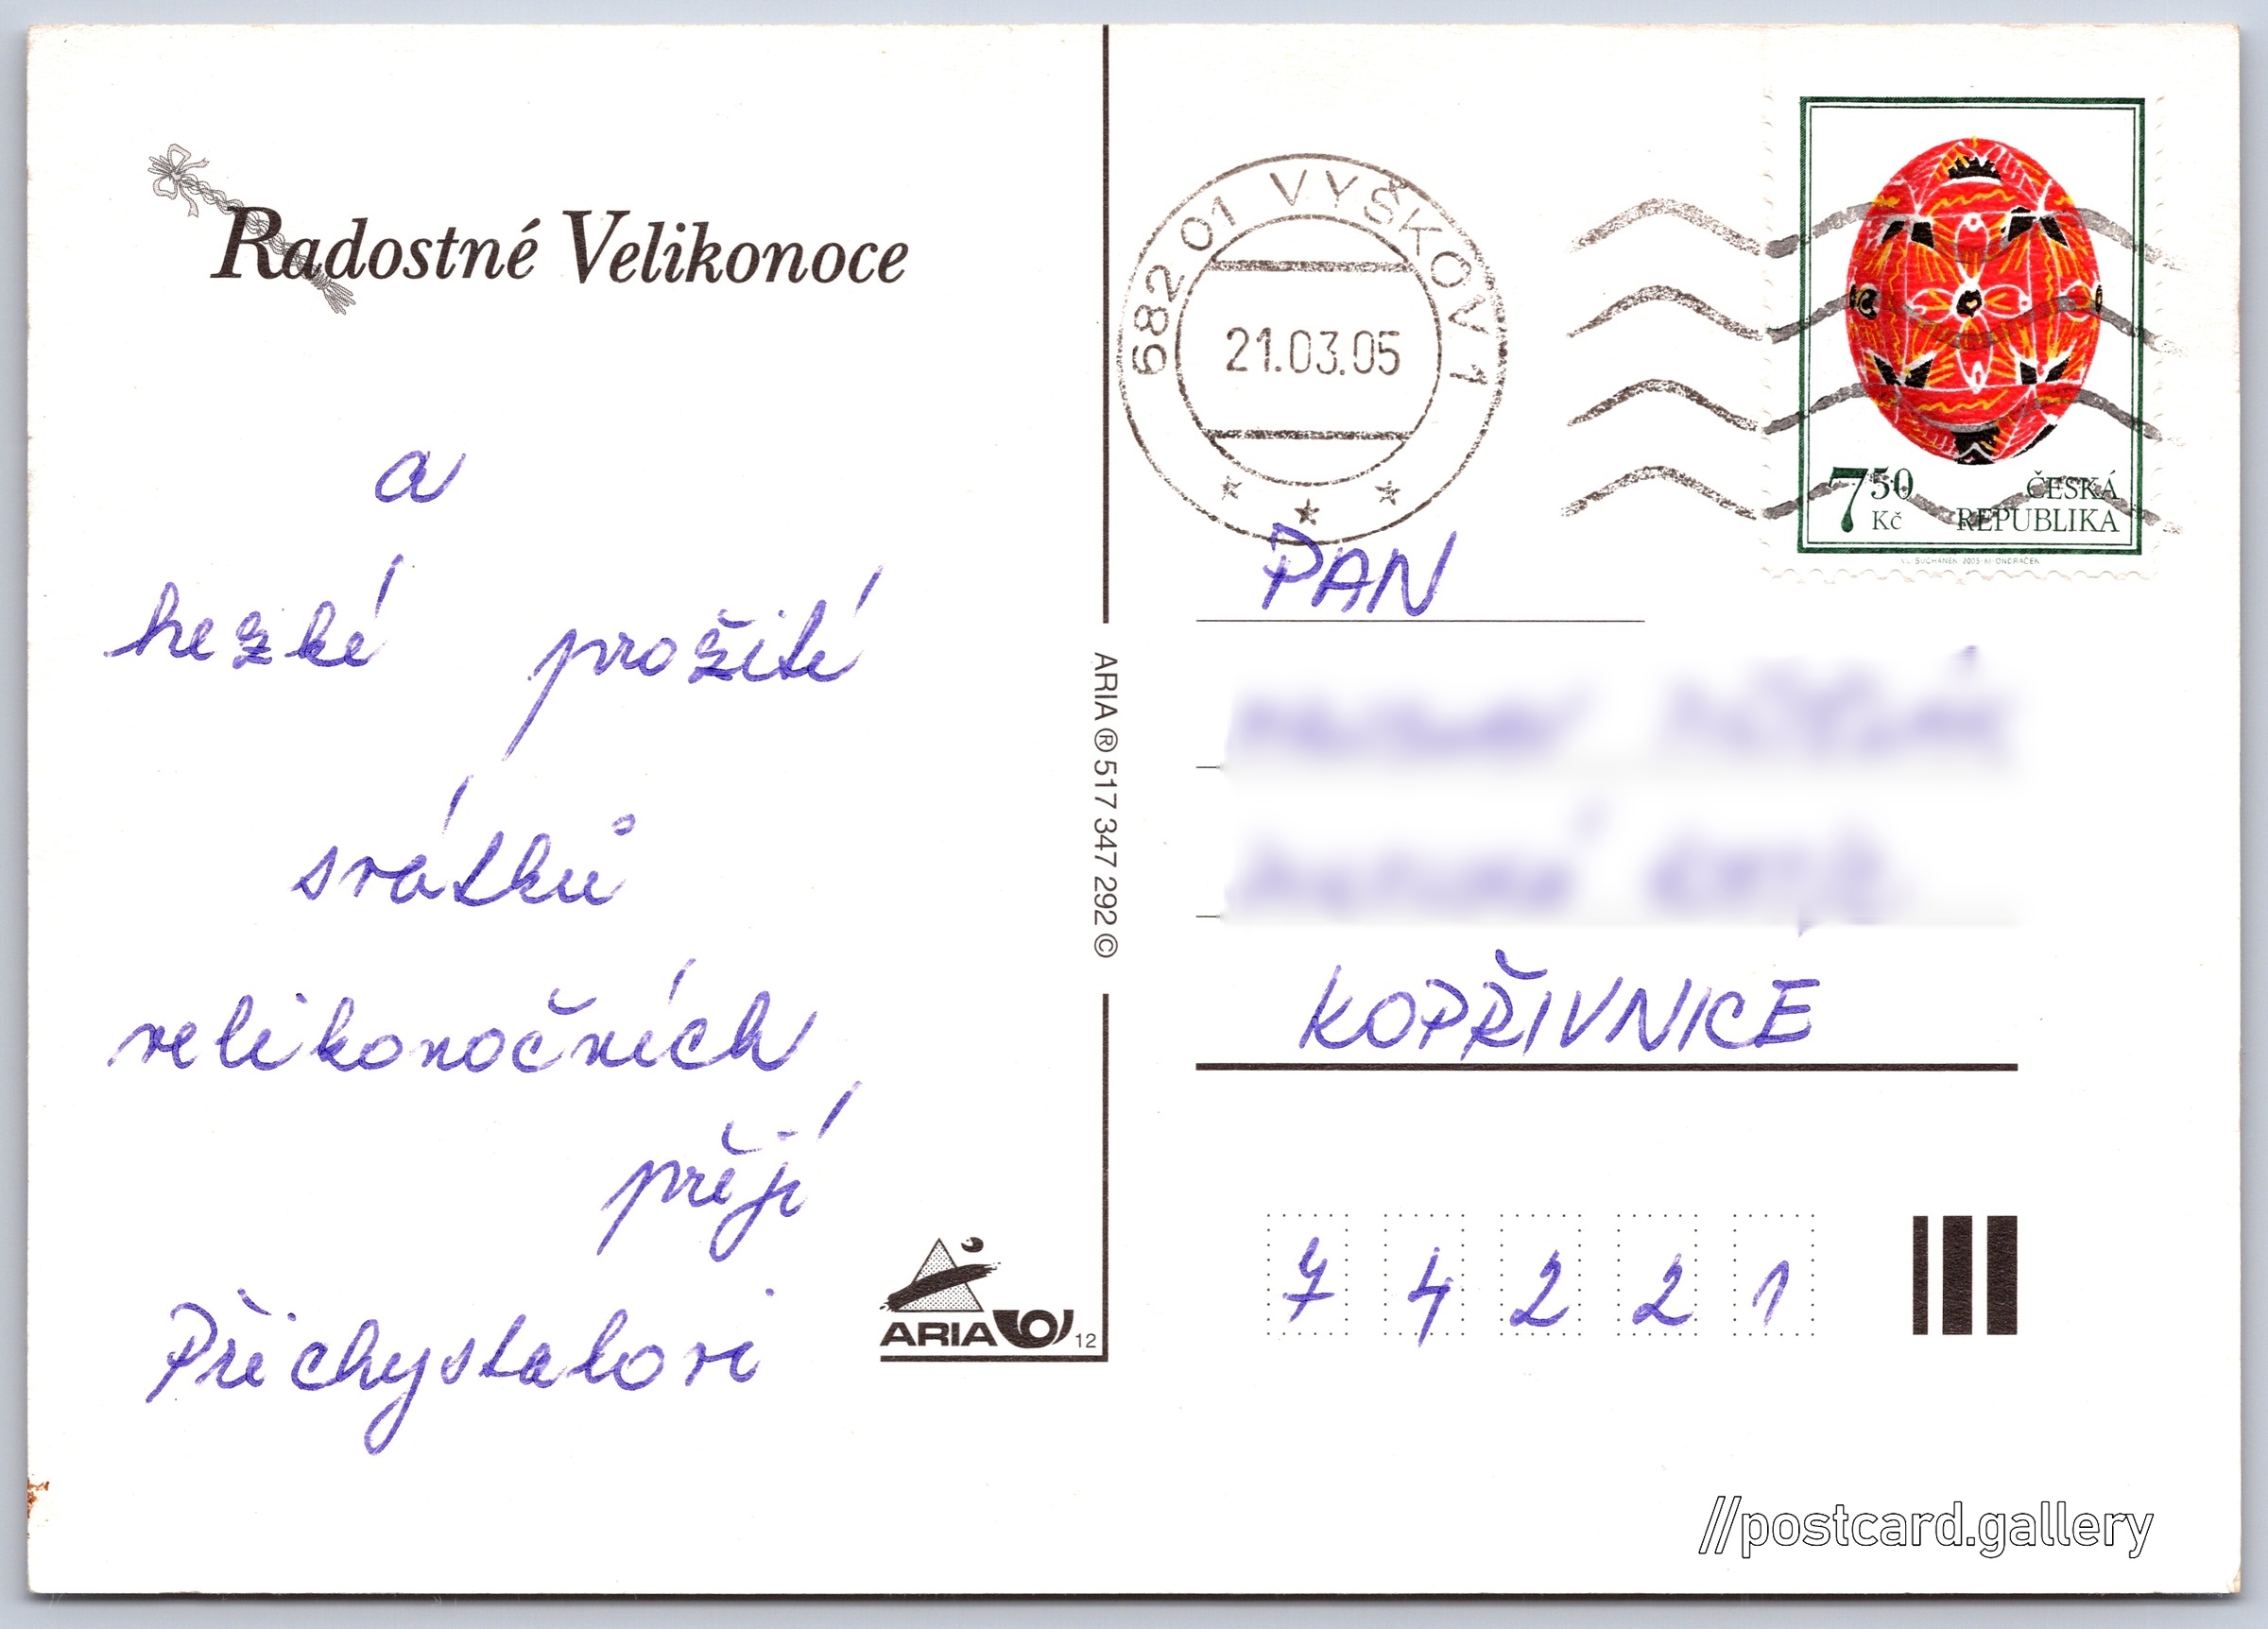 Radostné Velikonoce
a
hezké prožití
svátků
velikonočních
přejí
Přichystalovi
ARIA
12
ARIA ® 517 347 292 ©
682 01 VYŠKOV 1
21.03.05
7 50 Kč
ČESKÁ
REPUBLIKA
V. SUCHÁNEK 2005 M. ONDRÁČEK
PAN
KOPŘIVNICE
7 4 2 2 1
//postcard.gallery